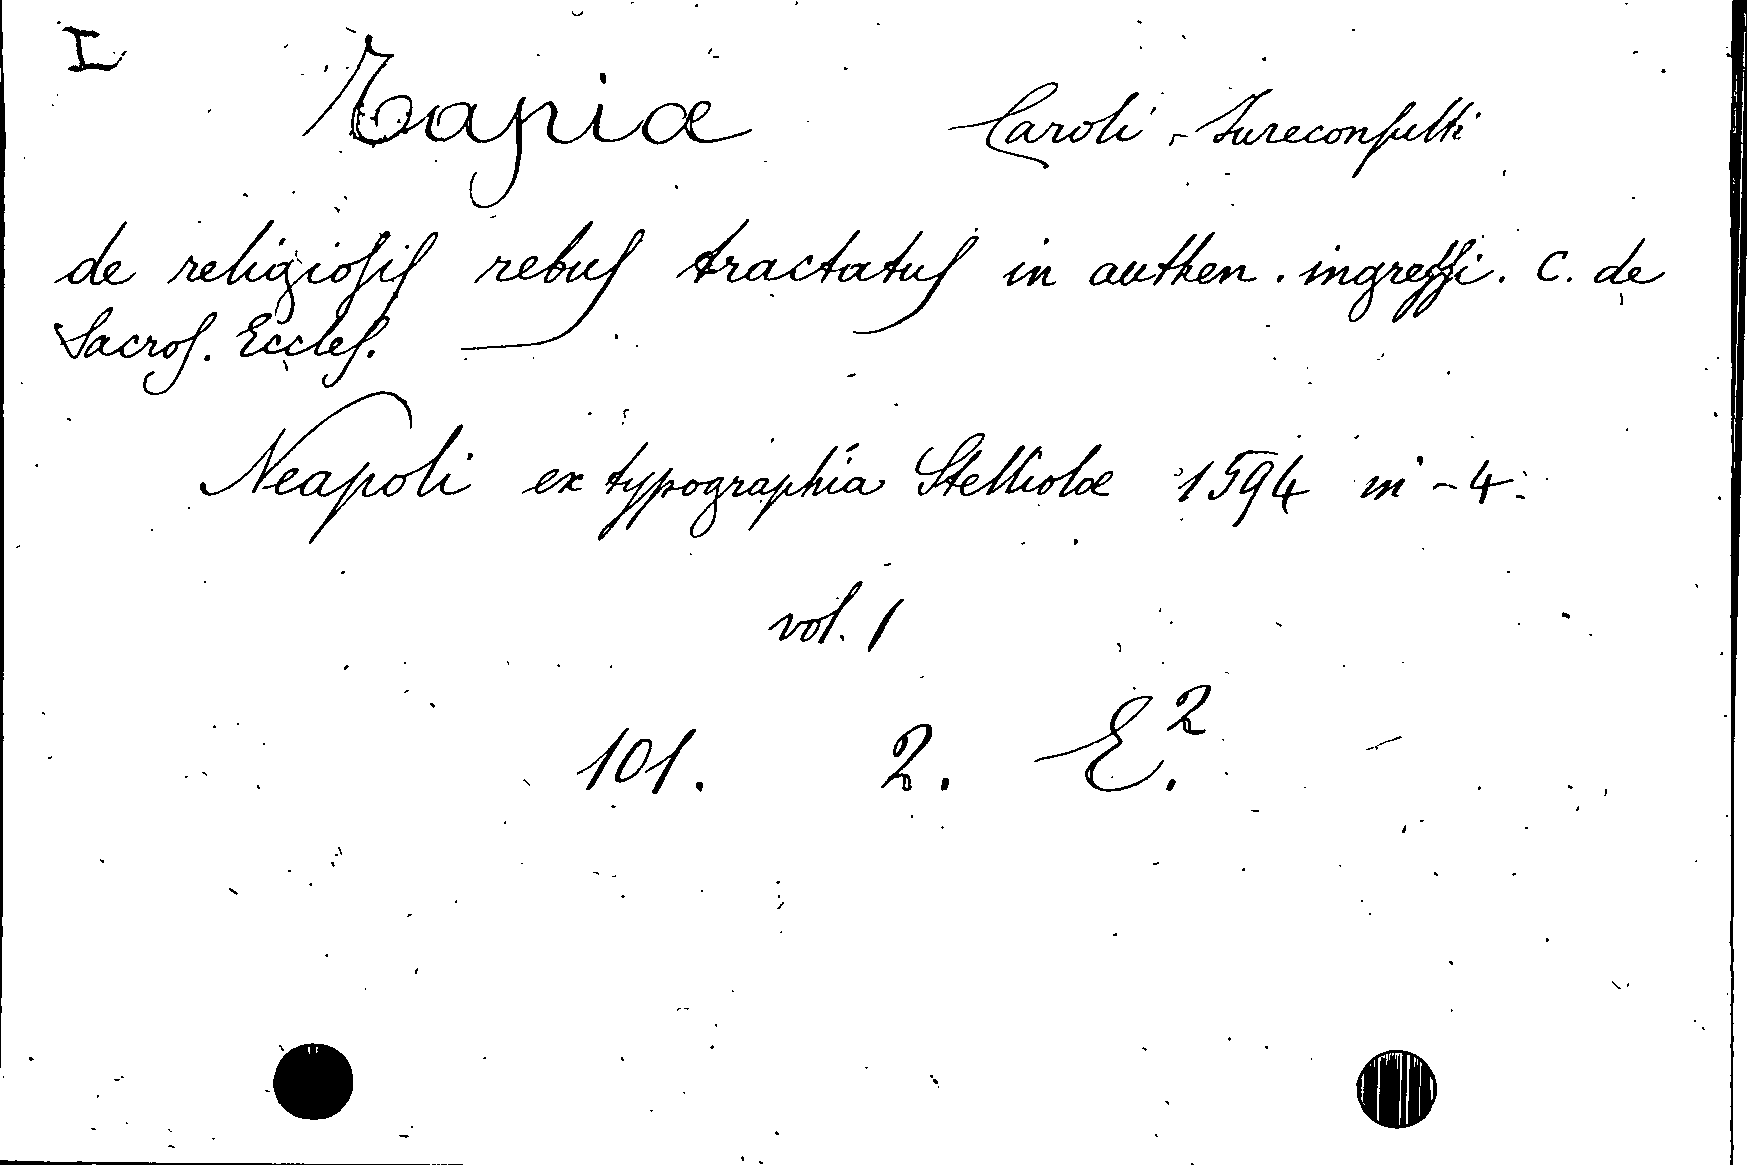 I
Tapiæ Caroli, Iureconſulti
de religioſiſ rebuſ tractatuſ in authen. ingreſſi. C. de
Sacroſ. Eccleſ.
Neapoli ex typographia Stelliolæ 1594 in-4.
vol. 1
101. 2. E.²